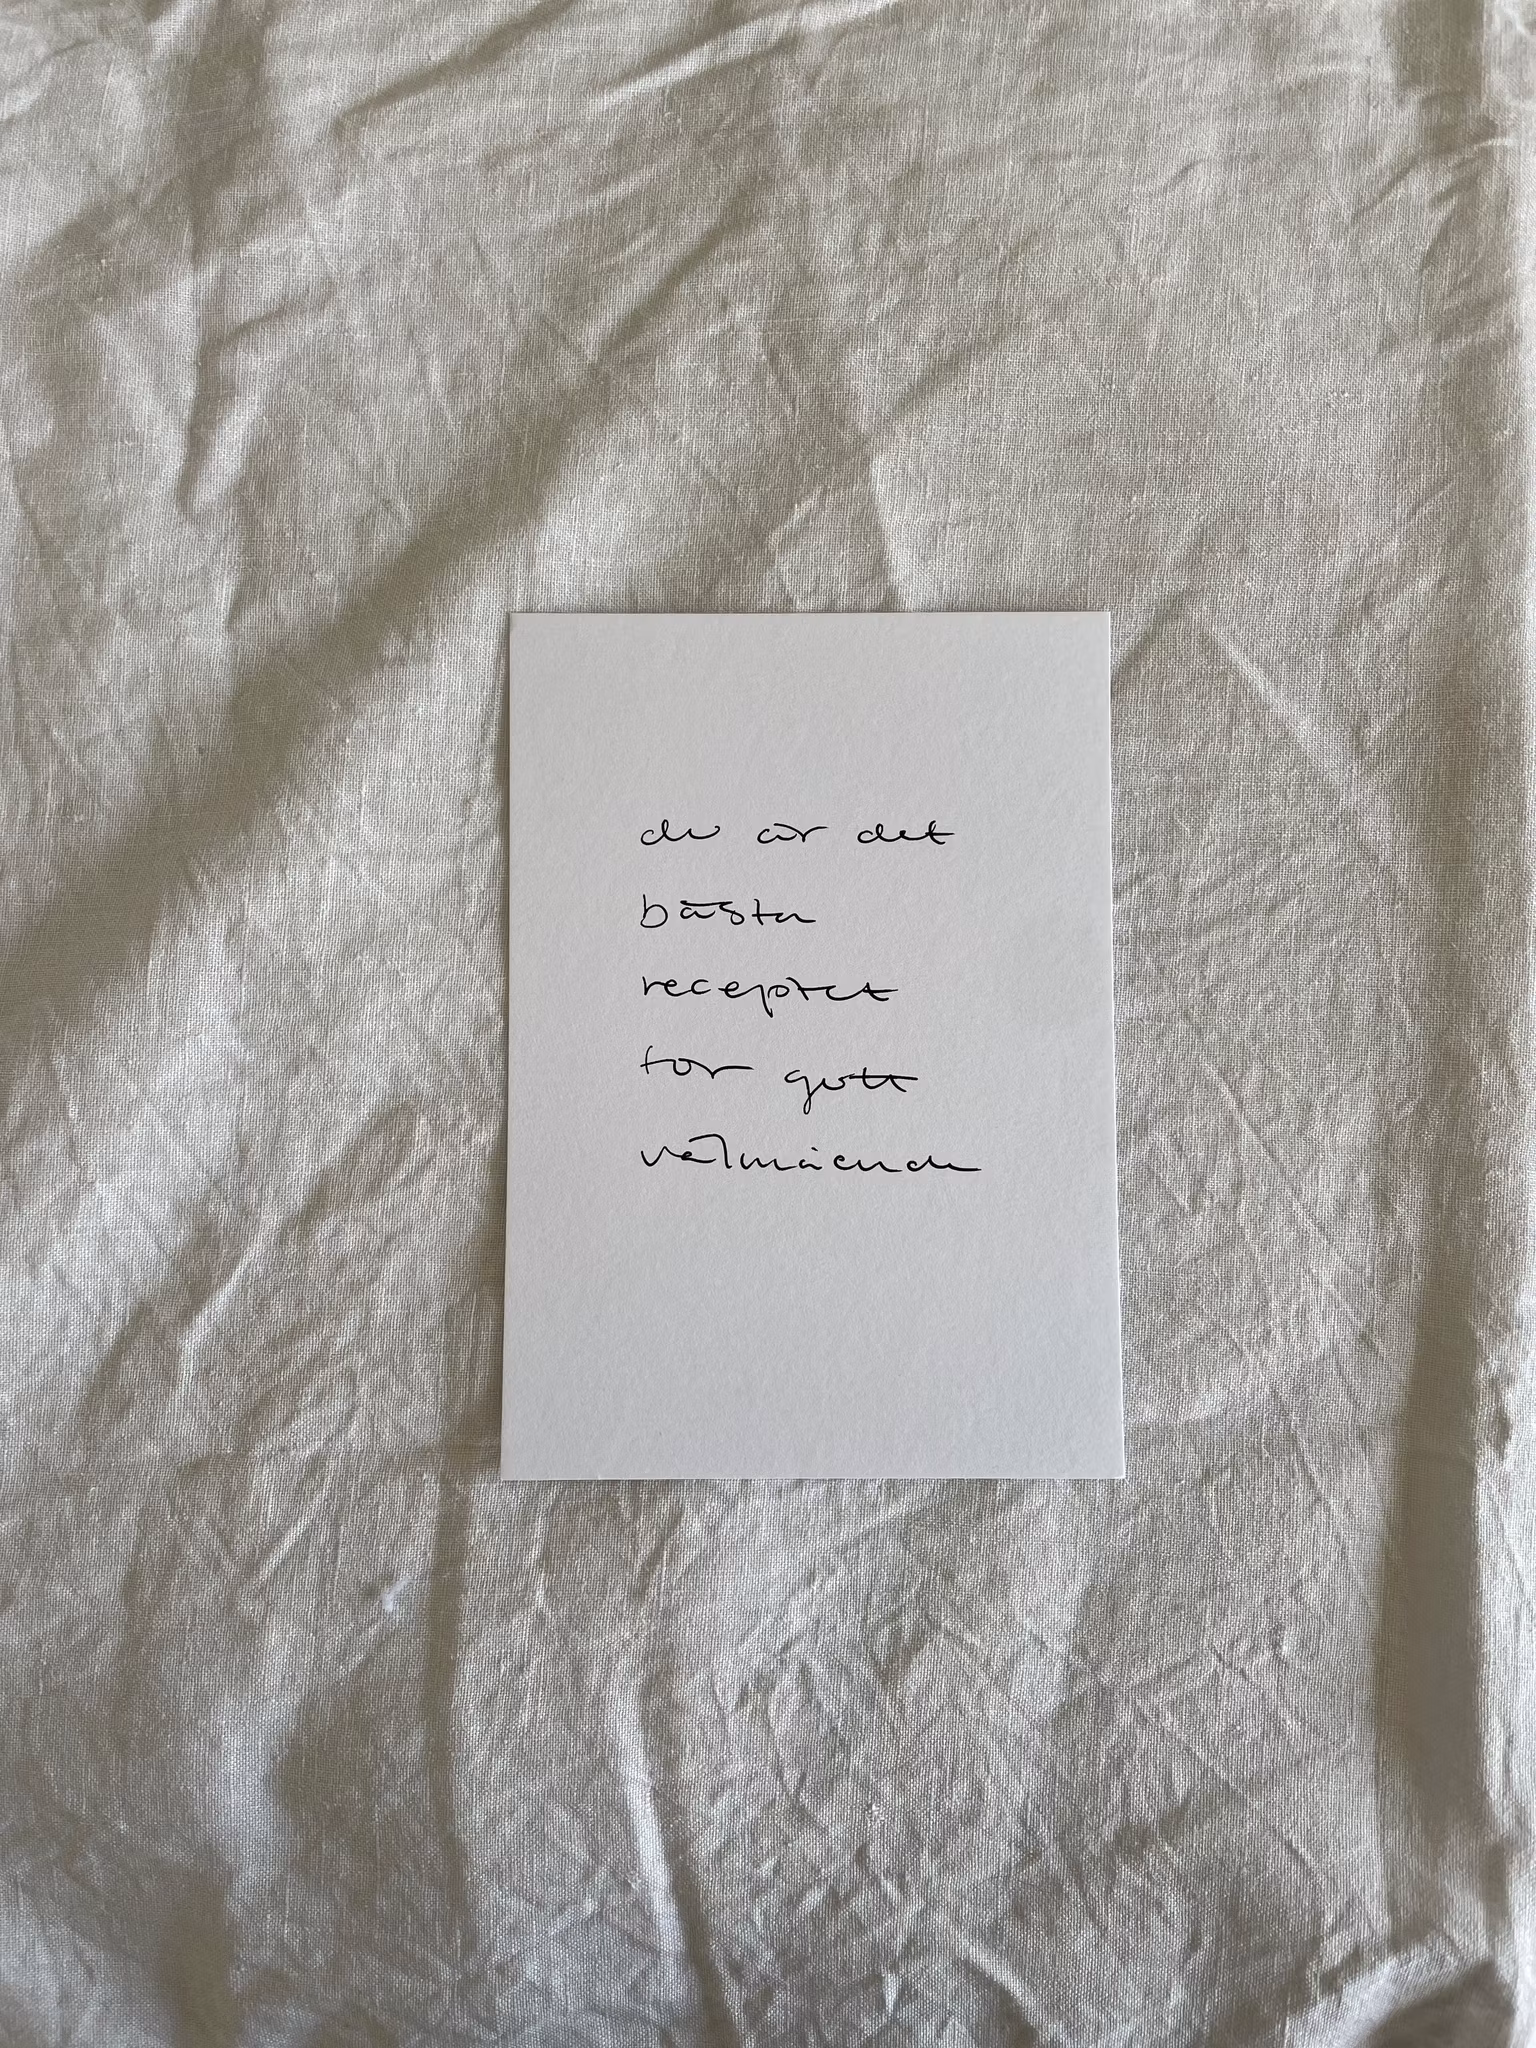 du är det
bästa
receptet
för gott
välmående